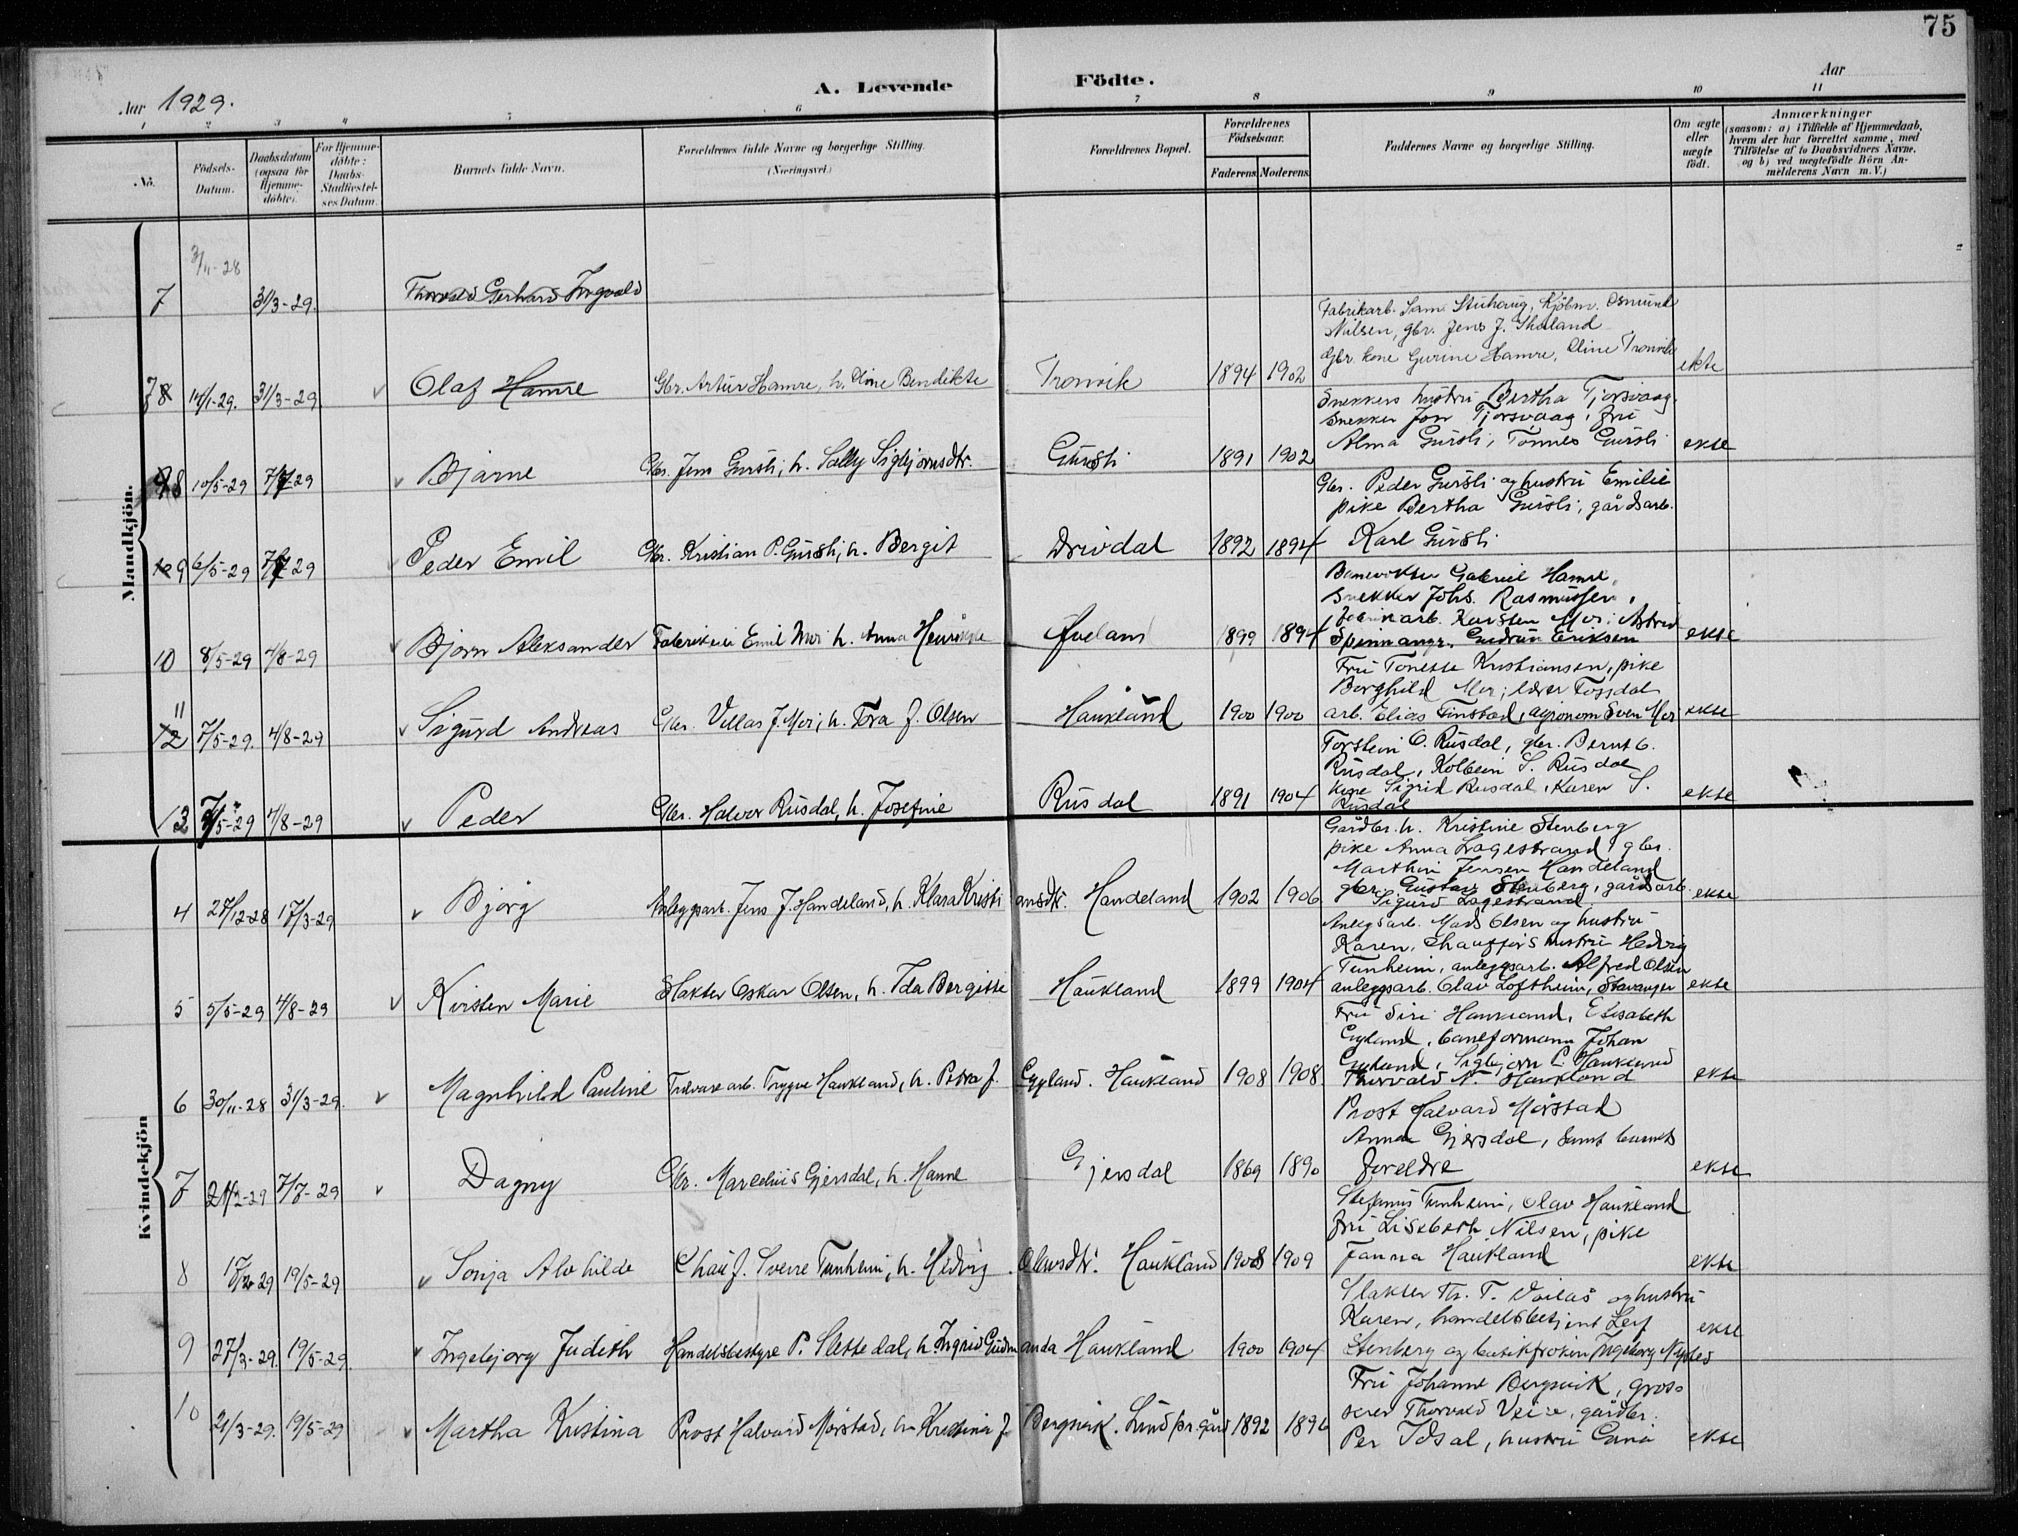 75
A. Levende Födte.
Aar 1929.
Aar
1 2 3 4 5 6 7 8 9 10 11
No.
Födsels-Datum.
Daabsdatum (ogsaa for Hjemmedöbte).
For Hjemmedöbte: Daabs-Stadfæstelses Datum.
Barnets fulde Navn.
Forældrenes fulde Navne og borgerlige Stilling. (Næringsvei.)
Forældrenes Bopæl.
Forældrenes Födselsaar.
Faderens. Moderens.
Faddernes Navne og borgerlige Stilling.
Om ægte eller uægte födt.
Anmærkninger
(saasom: a) i Tilfælde af Hjemmedaab, hvem der har forrettet samme, med Tilföielse af to Daabsvidners Navne, og b) ved uægtefödte Börn Anmelderens Navn m. V.)
Mandkjön.
7 3/11-28 31/3-29. Thorvald Gerhard Ingvald
Fabrikarb. Sam Stuhaug, Kjøbm. Osmund
Nilsen, gbr. Jens J.
Gbr. kone Gurine Hamre, Oline Tronvik
7 14/1-29. 31/3-29. Olaf Hamre Gbr. Artur Hamre, h. Oline Bendikte Tronvik 1894 1902 ekte
Snekkers hustru Bertha Tjorsvaag
Snekker Jon Tjorsvaag, fru
Alma Gursli, Tønnes Gursli
8 10/5-29 7/7-29 Bjarne Gbr. Jens Gursli, h. Sally Sigbjørnsdtr. Gursli 1891 1902 ekte
Gbr. Peder Gursli og hustru Emilie
pike Bertha Gursli, gårdsarb.
Karl Gursli
9 6/5-29 7/7-29 Peder Emil Gbr. Kristian P. Gursli, h. Bergit Drivdal 1892 1894
Banevokter Gabriel Hamre,
Snekker Johs. Rasmussen,
Fabrikarb. Karsten Moi, Astrid
Spinnangr, Gudrun Eriksen
10 8/5-29 4/8-29 Bjørn Aleksander Fabrikeier Emil Moi h. Anna Henrikke 1899 1894 ekte
Fru Tonette Kristiansen, pike
Borghild Moi, lærer Fossdal
arb. Elias Finstad, agronom Sven Moi
11 7/5-29. 4/8-29 Sigurd Andreas Gbr. Villas J. Moi, h. Tora J. Olsen Haukland 1900 1900 ekte
Torstein O. Rusdal, gbr. Bernt C.
Rusdal, Kolbein S. Rusdal
kone Sigrid Rusdal, Karen S.
Rusdal
13 7/5-29 4/8-29 Peder Gbr. Halvor Rusdal, h. Josefine Rusdal 1891 1904 ekte
Kvindekjön
Gårdbr. h. Kristine Stenberg
pike Anna Lagestrand, gbr.
Marthin Jensen Handeland
gbr. Gustav Stenberg, gårdsarb.
Sigurd Lagestrand.
4 27/12-28 17/3-29 Bjørg Anleggsarb. Jens J. Handeland, h. Klara Kristiansdtr. Handeland 1902 1906 ekte
Anlegsarb. Mads Olsen og hustru
Karen, Chaufførs hustru Hedvig
Tunheim, anleggsarb. Alfred Olsen
anleggsarb. Olav Loftheim, Stavanger
5 5/5-29 4/8-29 Kirsten Marie Slakter Oskar Olsen, h. Ida Bergitte Haukland 1899 1904 ekte
Fru Siri Haukland, Elisabeth
Eyland, baneformann Johan
Eyland, Sigbjørn L. Haukland
Thorvald N. Haukland
6 30/11-28 31/3-29. Magnhild Pauline Trevarearb. Trygve Haukland, h. Petra J. Eggland. Haukland 1908 1908 ekte
Prost Halvard Mørstad
Anna Gjersdal, samt barnets
foreldre
7 21/2-29 7/7-29 Dagny Gbr. Marcelius Gjersdal, h. Hanne Gjersdal 1869 1890 ekte
Stefanus Tunheim, Olav Haukland
fru Lisebeth Nilsen, pike
Janna Haukland
8 29 19/5-29 Sonja Alvhilde Chauf. Sverre Tunheim, h. Hedvig Olausdtr. Haukland 1908 1909 ekte
Slakter Th. T. og hustru
Karen, handelsbetjent Leif
Stenberg og butikfrøken Ingeborg Nysted
9 27/3-29. 19/5-29. Ingebjørg Judith Handelsbestyre P. Slettedal, h. Ingrid Gudmanda Haukland 1900 1904 ekte
Fru Johanne Bergsvik, grosserer
Thorvald, gårdbr.
Per Idsal, hustru Gina
10 21/3-29. 19/5-29 Martha Kristina Prost Halvard Mørstad, h. Kristina J. Bergsvik. Lund pr.gård 1892 1896 ekte